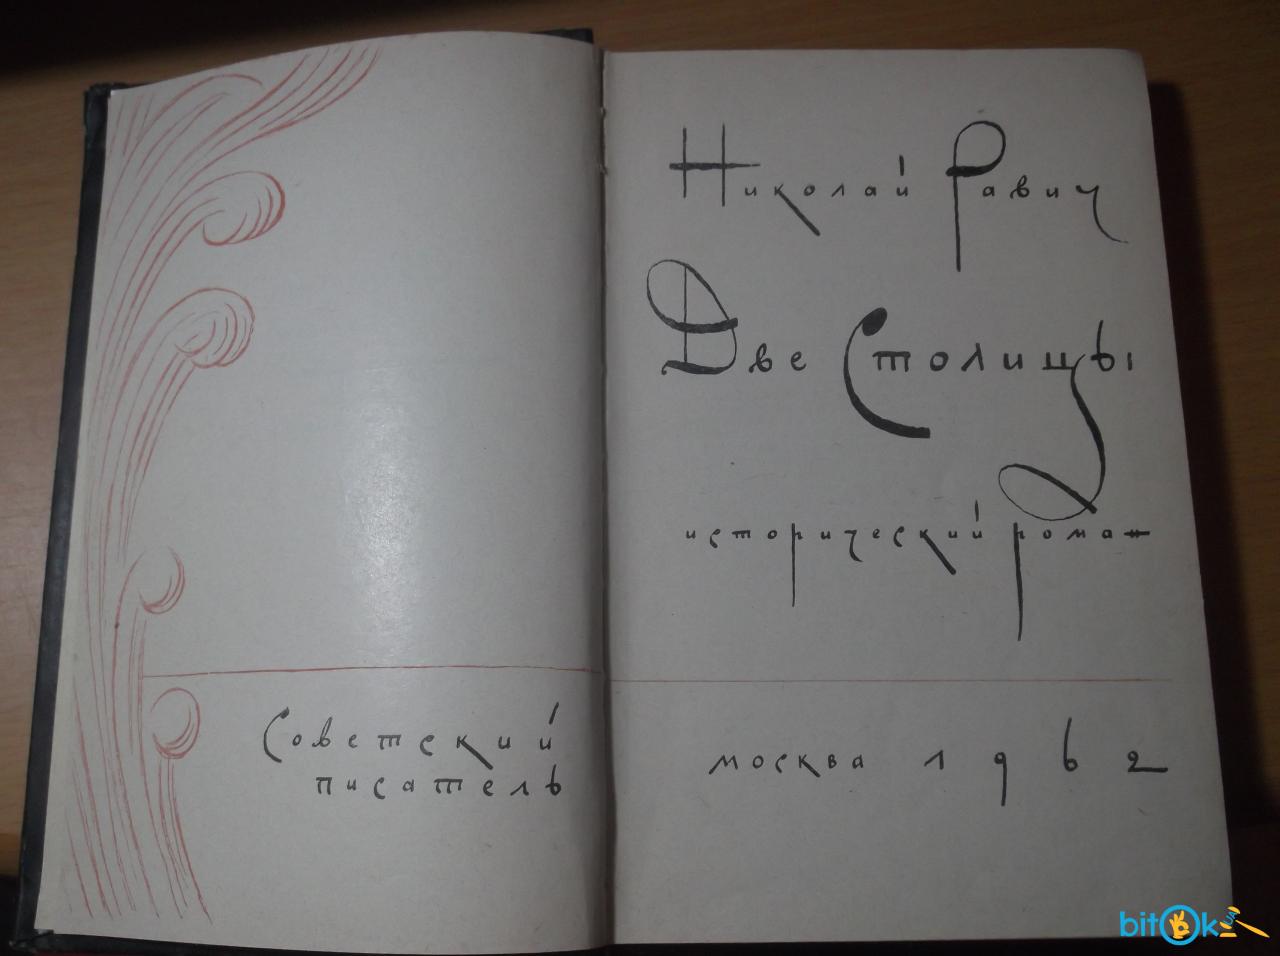 Николай Равич
Две Столицы
исторический роман
Советский
писатель
москва 1962
bitOk.UA